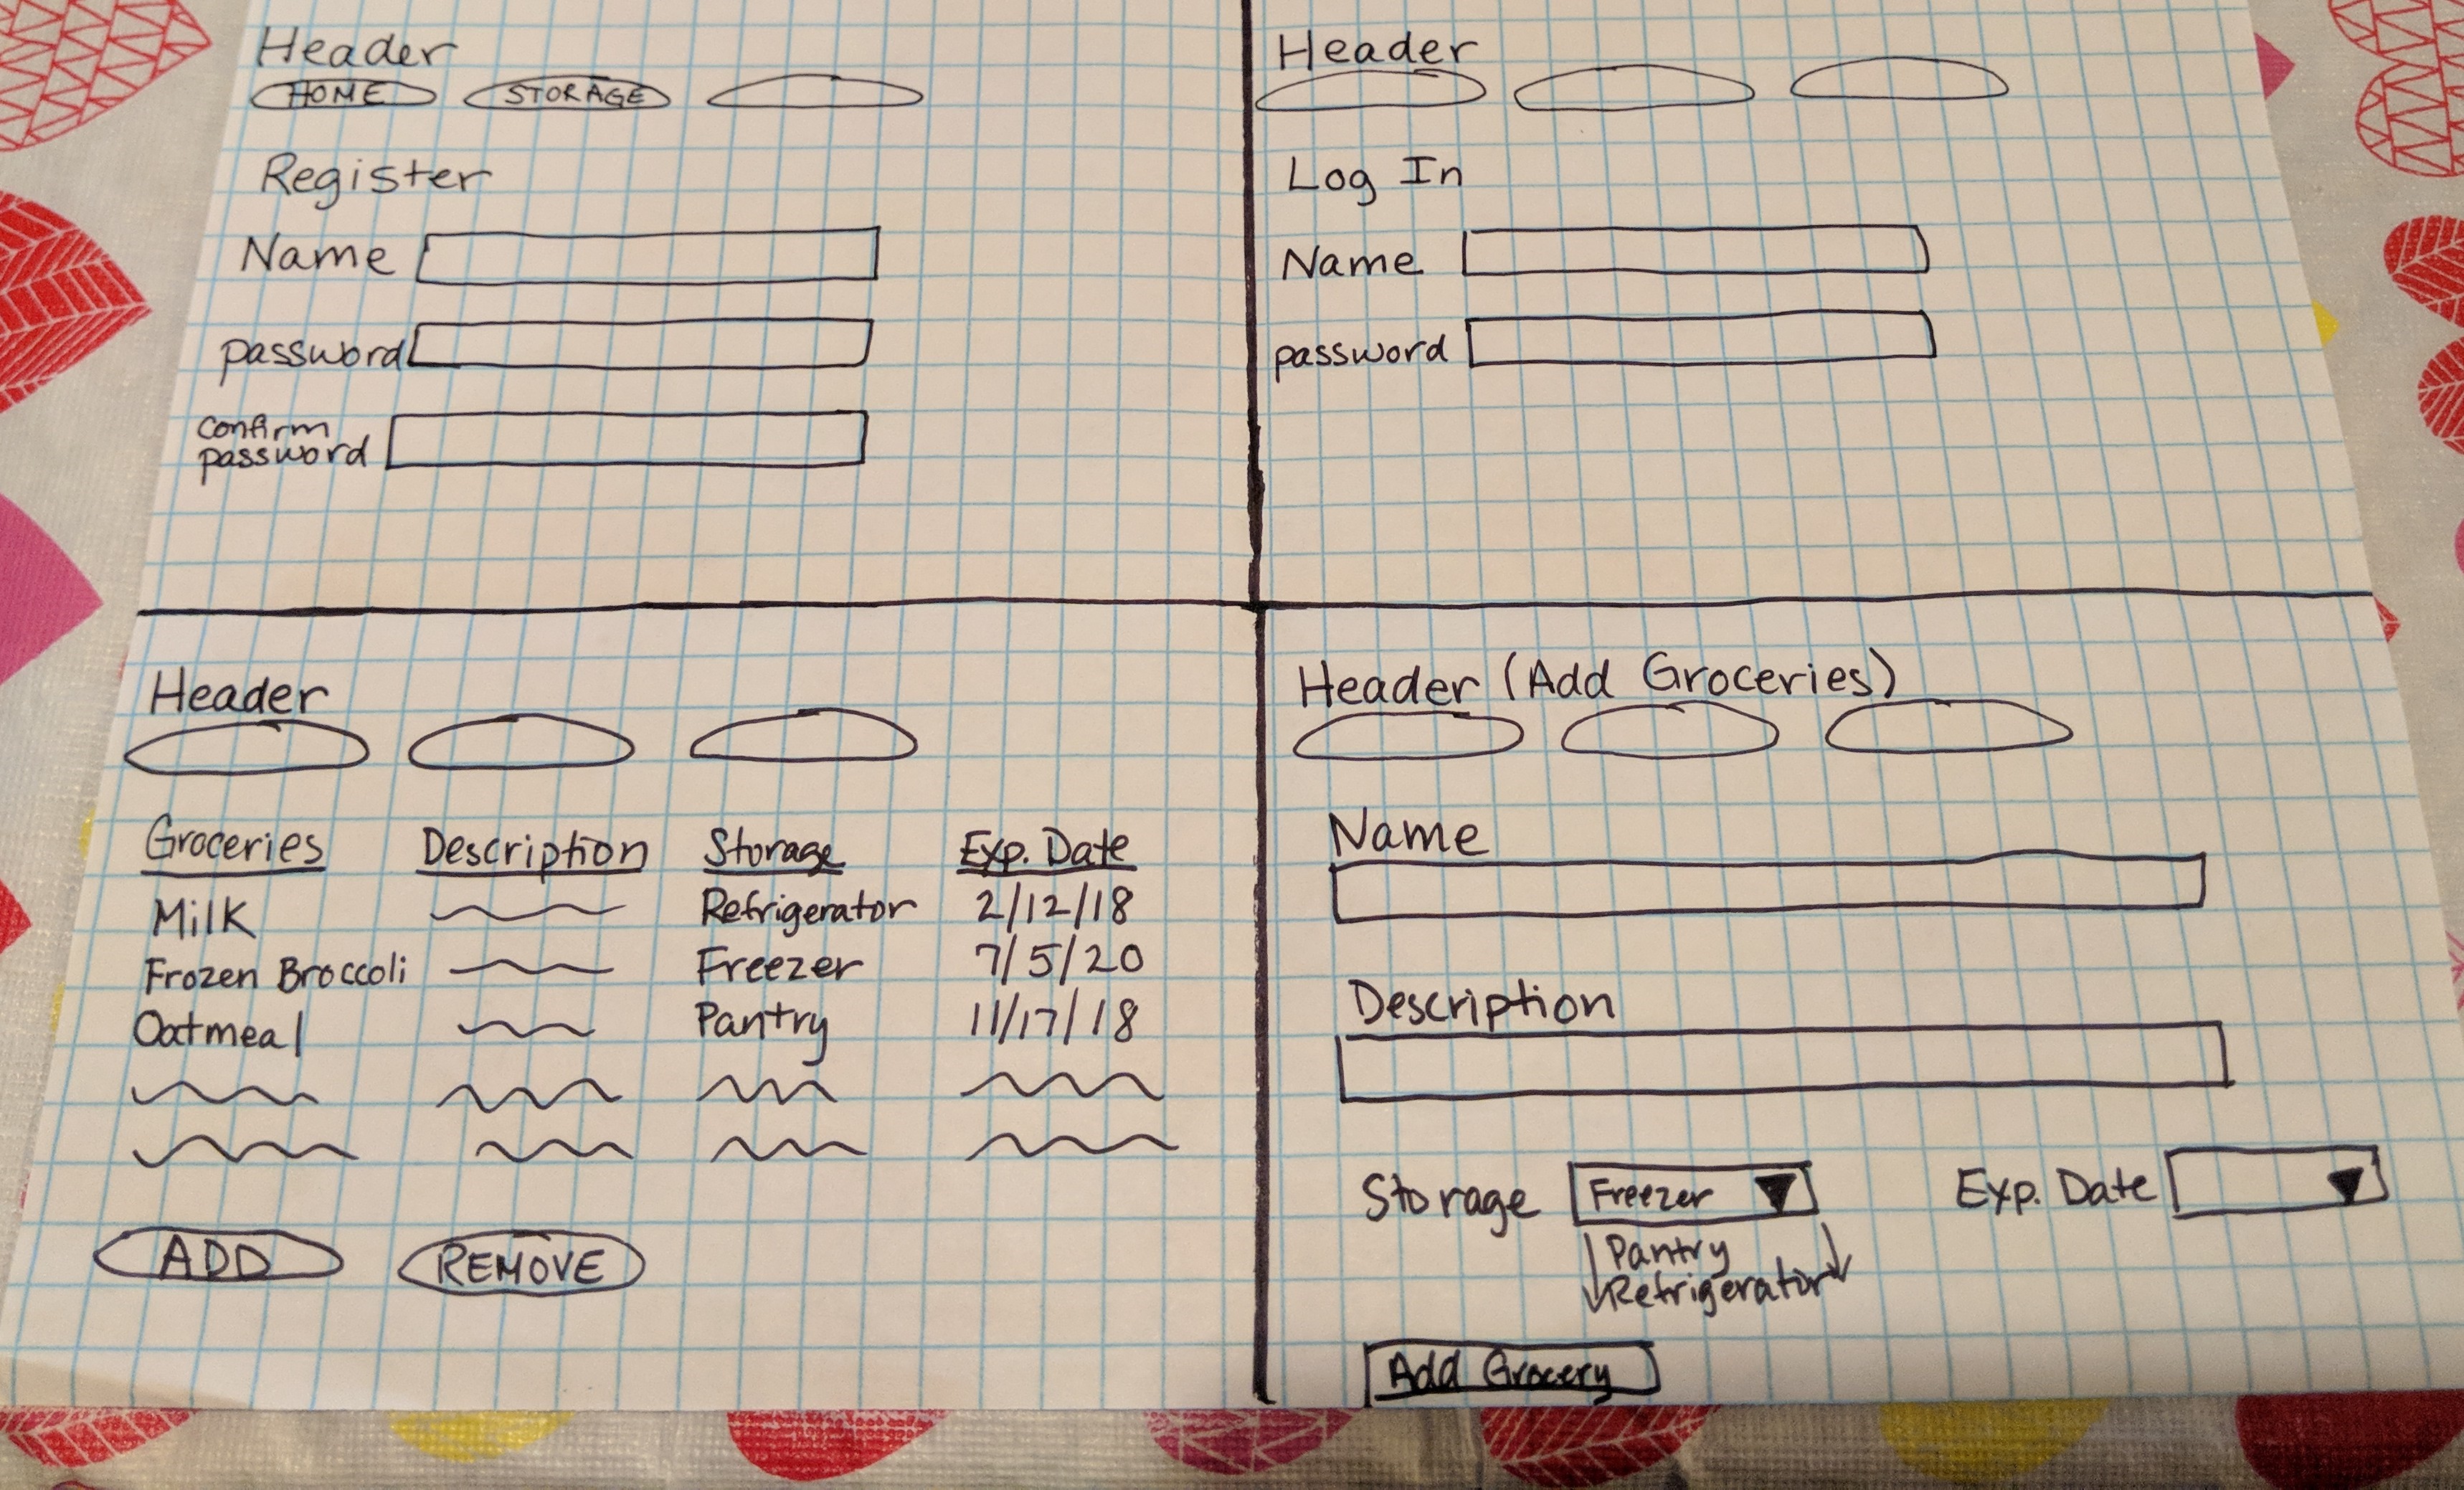 Header
HOME STORAGE
Register
Name
password
confirm
password
Header
Log In
Name
password
Header
Groceries Description Storage Exp. Date
Milk Refrigerator 2/12/18
Frozen Broccoli Freezer 7/5/20
Oatmeal Pantry 11/17/18
ADD REMOVE
Header (Add Groceries)
Name
Description
Storage Freezer Exp. Date
Pantry
Refrigerator
Add Grocery